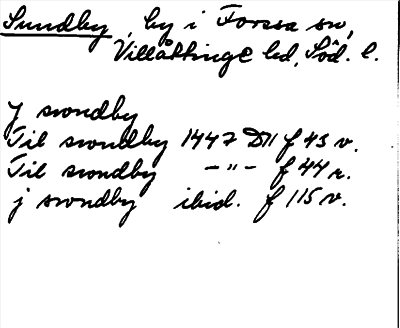 Sundby, by i Forssa sn,
Villåttinge hd, Söd. l.
J swndby
Til swndby 1447 D11 f 43 v.
Til swndby –"– f 44 r.
j swndby ibid. f 115 v.